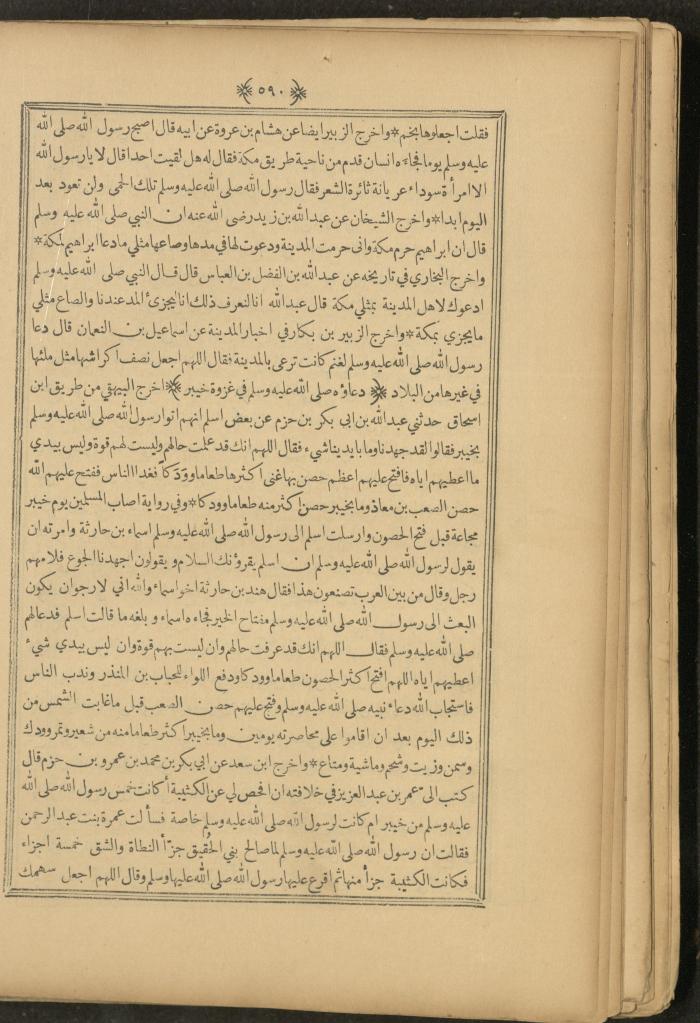 ﴿٥٩٠﴾
فقلت اجعلوها بخم * واخرج الزبير ايضا عن هشام بن عروة عن ابيه قال اصبح رسول الله صلى الله
عليه وسلم يوما فجاءه انسان قدم من ناحية طريق مكة فقال له هل لقيت احدا قال لا يا رسول الله
الا امرأة سوداء عريانة ثائرة الشعر فقال رسول الله صلى الله عليه وسلم تلك الحمى ولن تعود بعد
اليوم ابدا * واخرج الشيخان عن عبد الله بن زيد رضى الله عنه ان النبي صلى الله عليه وسلم
قال ان ابراهيم حرم مكة وانى حرمت المدينة ودعوت لها في مدها وصاعها مثلي ما دعا ابراهيم لمكة *
واخرج البخاري في تاريخه عن عبد الله بن الفضل بن العباس قال قال النبي صلى الله عليه وسلم
ادعوك لاهل المدينة بمثلي مكة قال عبد الله انا لنعرف ذلك انا ليجزئ المد عندنا والصاع مثلي
ما يجزي بمكة * واخرج الزبير بن بكار في اخبار المدينة عن اسماعيل بن النعمان قال دعا
رسول الله صلى الله عليه وسلم لغنم كانت ترعى بالمدينة فقال اللهم اجعل نصف اكراشها مثل ملئها
في غيرها من البلاد ﴿ دعاؤه صلى الله عليه وسلم في غزوة خيبر ﴾ اخرج البيهقي من طريق ابن
اسحاق حدثني عبد الله بن ابي بكر بن حزم عن بعض اسلم انهم اتوا رسول الله صلى الله عليه وسلم
بخيبر فقالوا لقد جهدنا وما بايدينا شيء فقال اللهم انك قد علمت حالهم وليست لهم قوة وليس بيدي
ما اعطيهم اياه فافتح عليهم اعظم حصن بها غنى اكثرها طعاما وودكا فغدا الناس ففتح عليهم الله
حصن الصعب بن معاذ وما بخيبر حصن اكثر منه طعاما وودكا * وفي رواية اصاب المسلمين يوم خيبر
مجاعة قبل فتح الحصون وارسلت اسلم الى رسول الله صلى الله عليه وسلم اسماء بن حارثة وامرته ان
يقول لرسول الله صلى الله عليه وسلم ان اسلم يقرؤنك السلام ويقولون اجهدنا الجوع فلامهم
رجل وقال من بين العرب تصنعون هذا فقال هند بن حارثة اخو اسماء والله اني لارجو ان يكون
البعث الى رسول الله صلى الله عليه وسلم مفتاح الخير فجاءه اسماء وبلغه ما قالت اسلم فدعا لهم
صلى الله عليه وسلم فقال اللهم انك قد عرفت حالهم وان ليست بهم قوة وان ليس بيدي شيء
اعطيهم اياه اللهم افتح اكثر الحصون طعاما وودكا ودفع اللواء للحباب بن المنذر وندب الناس
فاستجاب الله دعاء نبيه صلى الله عليه وسلم وفتح عليهم حصن الصعب قبل ما غابت الشمس من
ذلك اليوم بعد ان اقاموا على محاصرته يومين وما بخيبر اكثر طعاما منه من شعير وتمر وودك
وسمن وزيت وشحم وماشية ومتاع * واخرج ابن سعد عن ابي بكر بن محمد بن عمرو بن حزم قال
كتب الى عمر بن عبد العزيز في خلافته ان افحص لي عن الكثيبة أكانت خمس رسول الله صلى الله
عليه وسلم من خيبر ام كانت لرسول الله صلى الله عليه وسلم خاصة فسألت عمرة بنت عبد الرحمن
فقالت ان رسول الله صلى الله عليه وسلم لما صالح بني الحقيق جزأ النطاة والشق خمسة اجزاء
فكانت الكثيبة جزأ منها ثم اقرع عليها رسول الله صلى الله عليها وسلم وقال اللهم اجعل سهمك